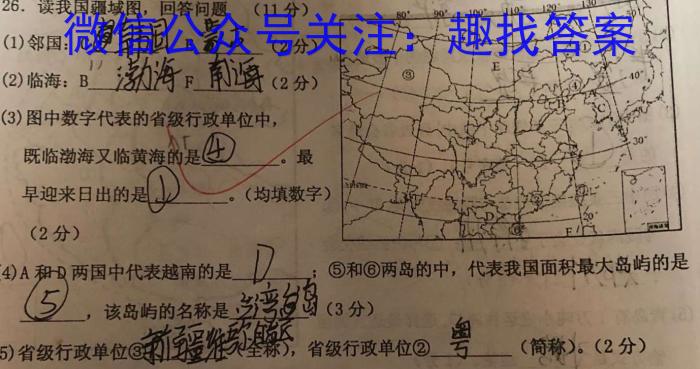 26. 读我国疆域图，回答问题 (11分)
微信公众号关注：趣找答案
(1)邻国: (2分)
(2)临海: B 渤海 F 南海 (2分)
(3)图中数字代表的省级行政单位中，
既临渤海又临黄海的是 ④ 。最
早迎来日出的是 ① 。(均填数字)
(2分)
(4)A和D两国中代表越南的是 D ；⑤和⑥两岛的中，代表我国面积最大岛屿的是
⑤ ，该岛屿的名称是 台湾岛 (3分)
5)省级行政单位③ 新疆维 全称)，省级行政单位② 粤 (简称)。(2分)
80°
E
①
③
④
40°
30°
20°
D
F